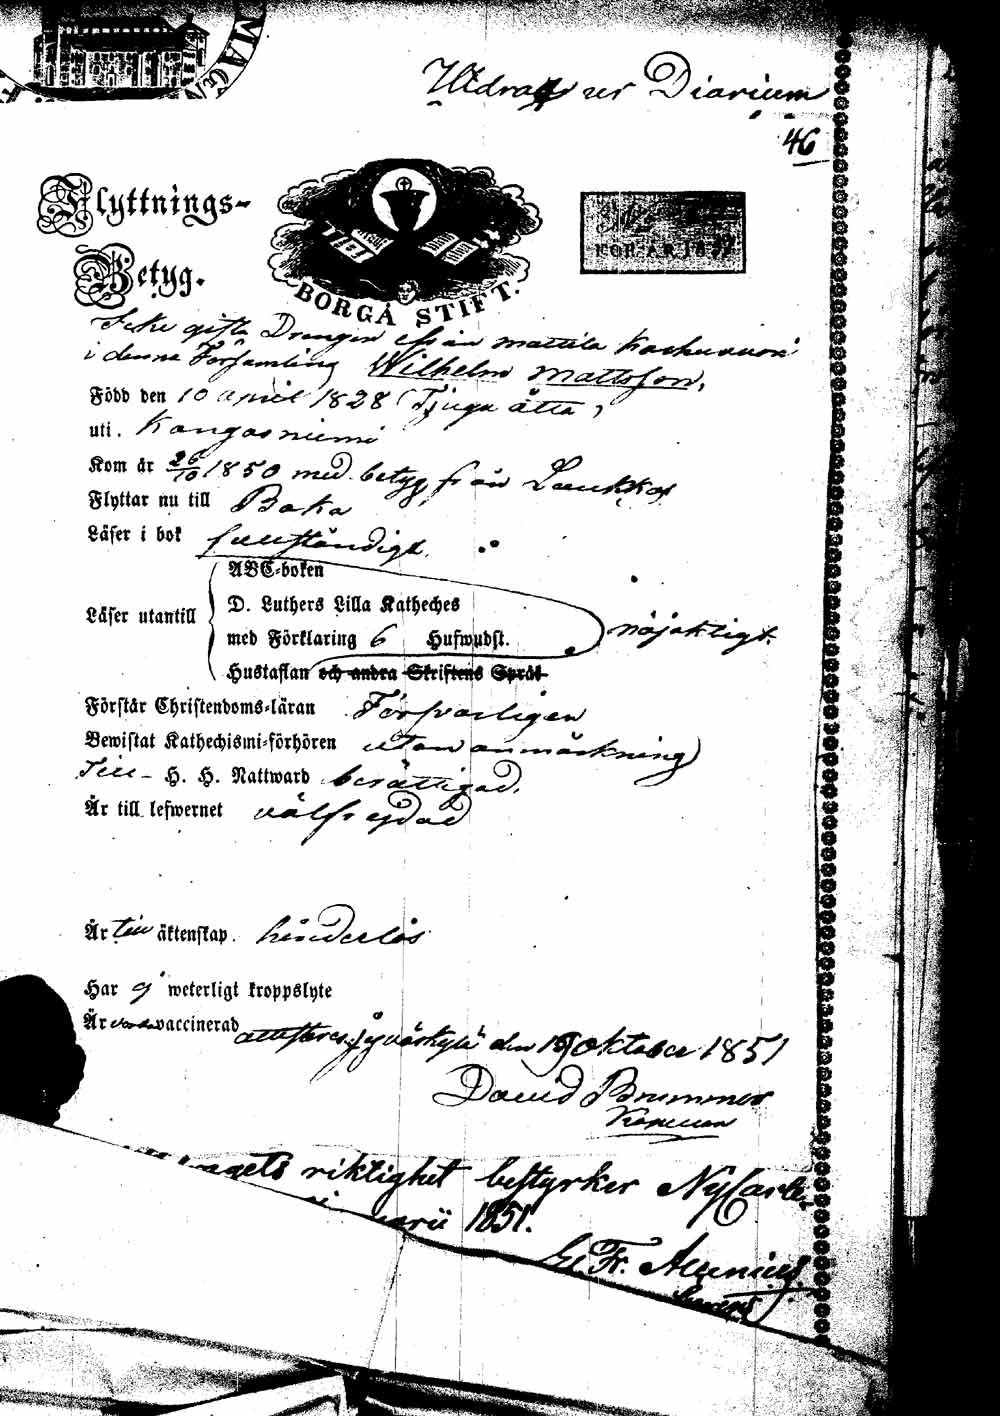 Utdrag ur Diarium
46
Flyttnings-
Betyg.
BORGÅ STIFT.
Icke gifta Drängen ifrån Mattila
i denna Församling Wilhelm Mattsson,
Född den 10 April 1828 (Tjugu åtta)
uti. Kangasniemi
Kom år 26/10 1850 med betyg från Laukkas
Flyttar nu till
Läser i bok fullständigt.
ABC-boken
D. Luthers Lilla Katheches
Läser utantill
nöjaktigt.
med Förklaring 6 Hufwudst.
Hustaflan och andra Skriftens Språk
Förstår Christendoms-läran Försvarligen
Bewistat Kathechismi-förhören utan anmärkning
Till H. H. Nattward berättigad.
Är till lefwernet välfrejdad
Är till äktenskap. hinderlös
Har ej weterligt kroppslyte
Är vaccinerad attesteras Jyväskylä den 19 Oktober 1851
David Brummer
riktighet bestyrker NyCarleby
1851.